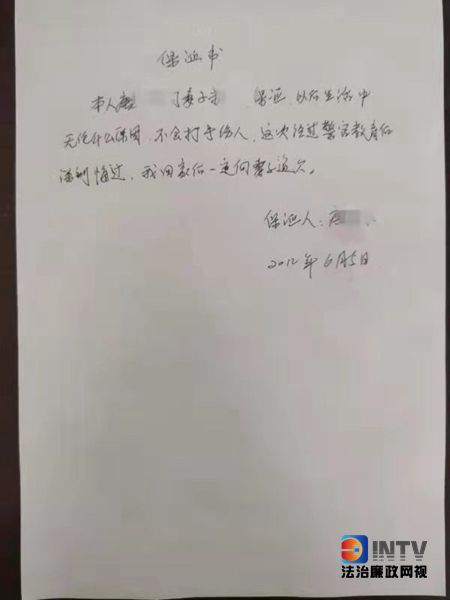 保证书
本人 了妻子 保证，以后生活中
无论什么原因，不会打手伤人，这次经过警官教育后
深刻悔过，我回家后一定向妻子道歉。
保证人：
2012年6月5日
INTV
法治廉政网视